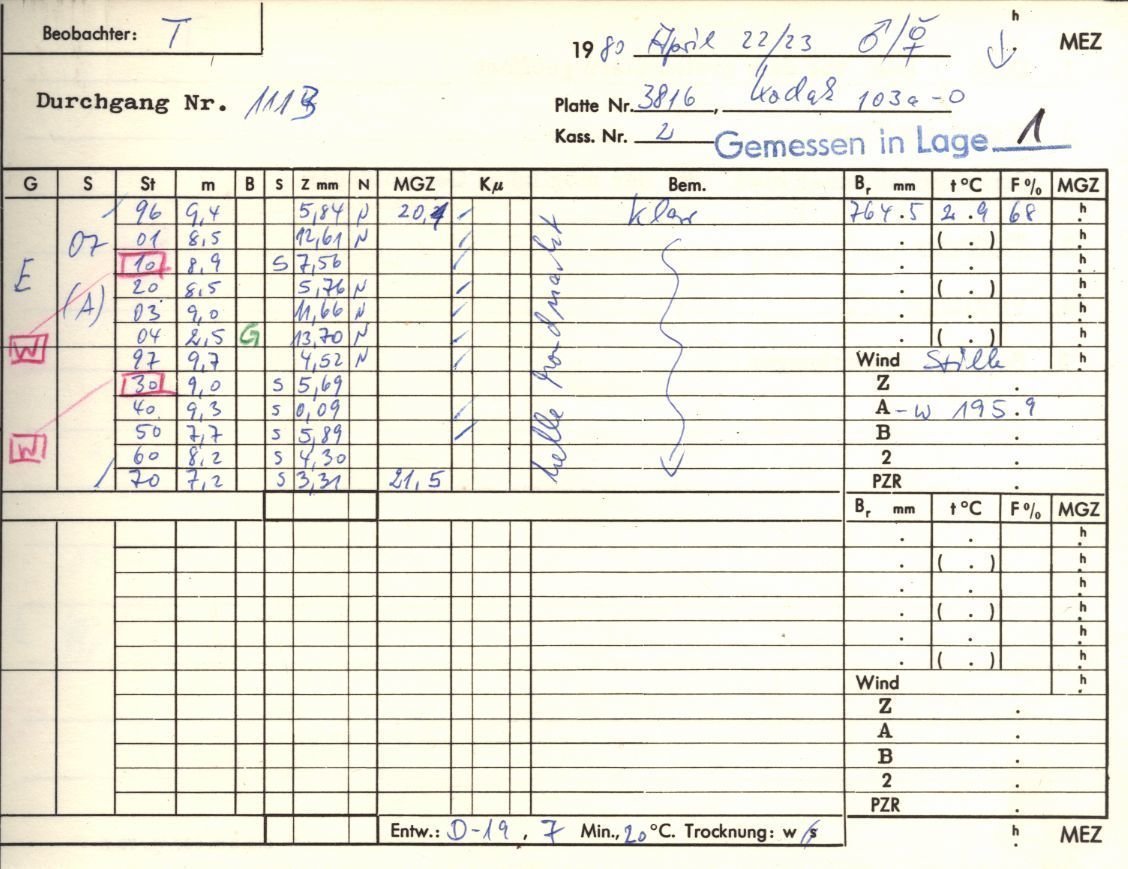 Beobachter: T
1980 April 22/23 ♂/♀ h MEZ
Durchgang Nr. 111B
Platte Nr. 3816, Kodak 103a-O
Kass. Nr. 2 Gemessen in Lage 1
G S St m B S Z mm N MGZ Kμ Bem. Br mm t °C F% MGZ
96 9,4 5,84 N 20, klar 764.5 2.9 68 h
07 01 8,5 12,61 N ( . ) h
E 10 8,9 S 7,56 . . h
20 8,5 5,76 N ( . ) h
(A) 03 9,0 11,66 N . . h
W 04 2,5 G 13,70 N ( . ) h
97 9,7 4,52 N Wind Stille h
30 9,0 S 5,69 Z .
40 9,3 S 0,09 A -W 195.9
W 50 7,7 S 5,89 B .
60 8,2 S 4,30 2 .
70 7,2 S 3,31 21,5 PZR .
helle
Br mm t °C F% MGZ
. . h
. ( . ) h
. . h
. ( . ) h
. . h
. ( . ) h
Wind h
Z .
A .
B .
2 .
PZR .
Entw.: D-19, 7 Min., 20 °C. Trocknung: w/s h MEZ